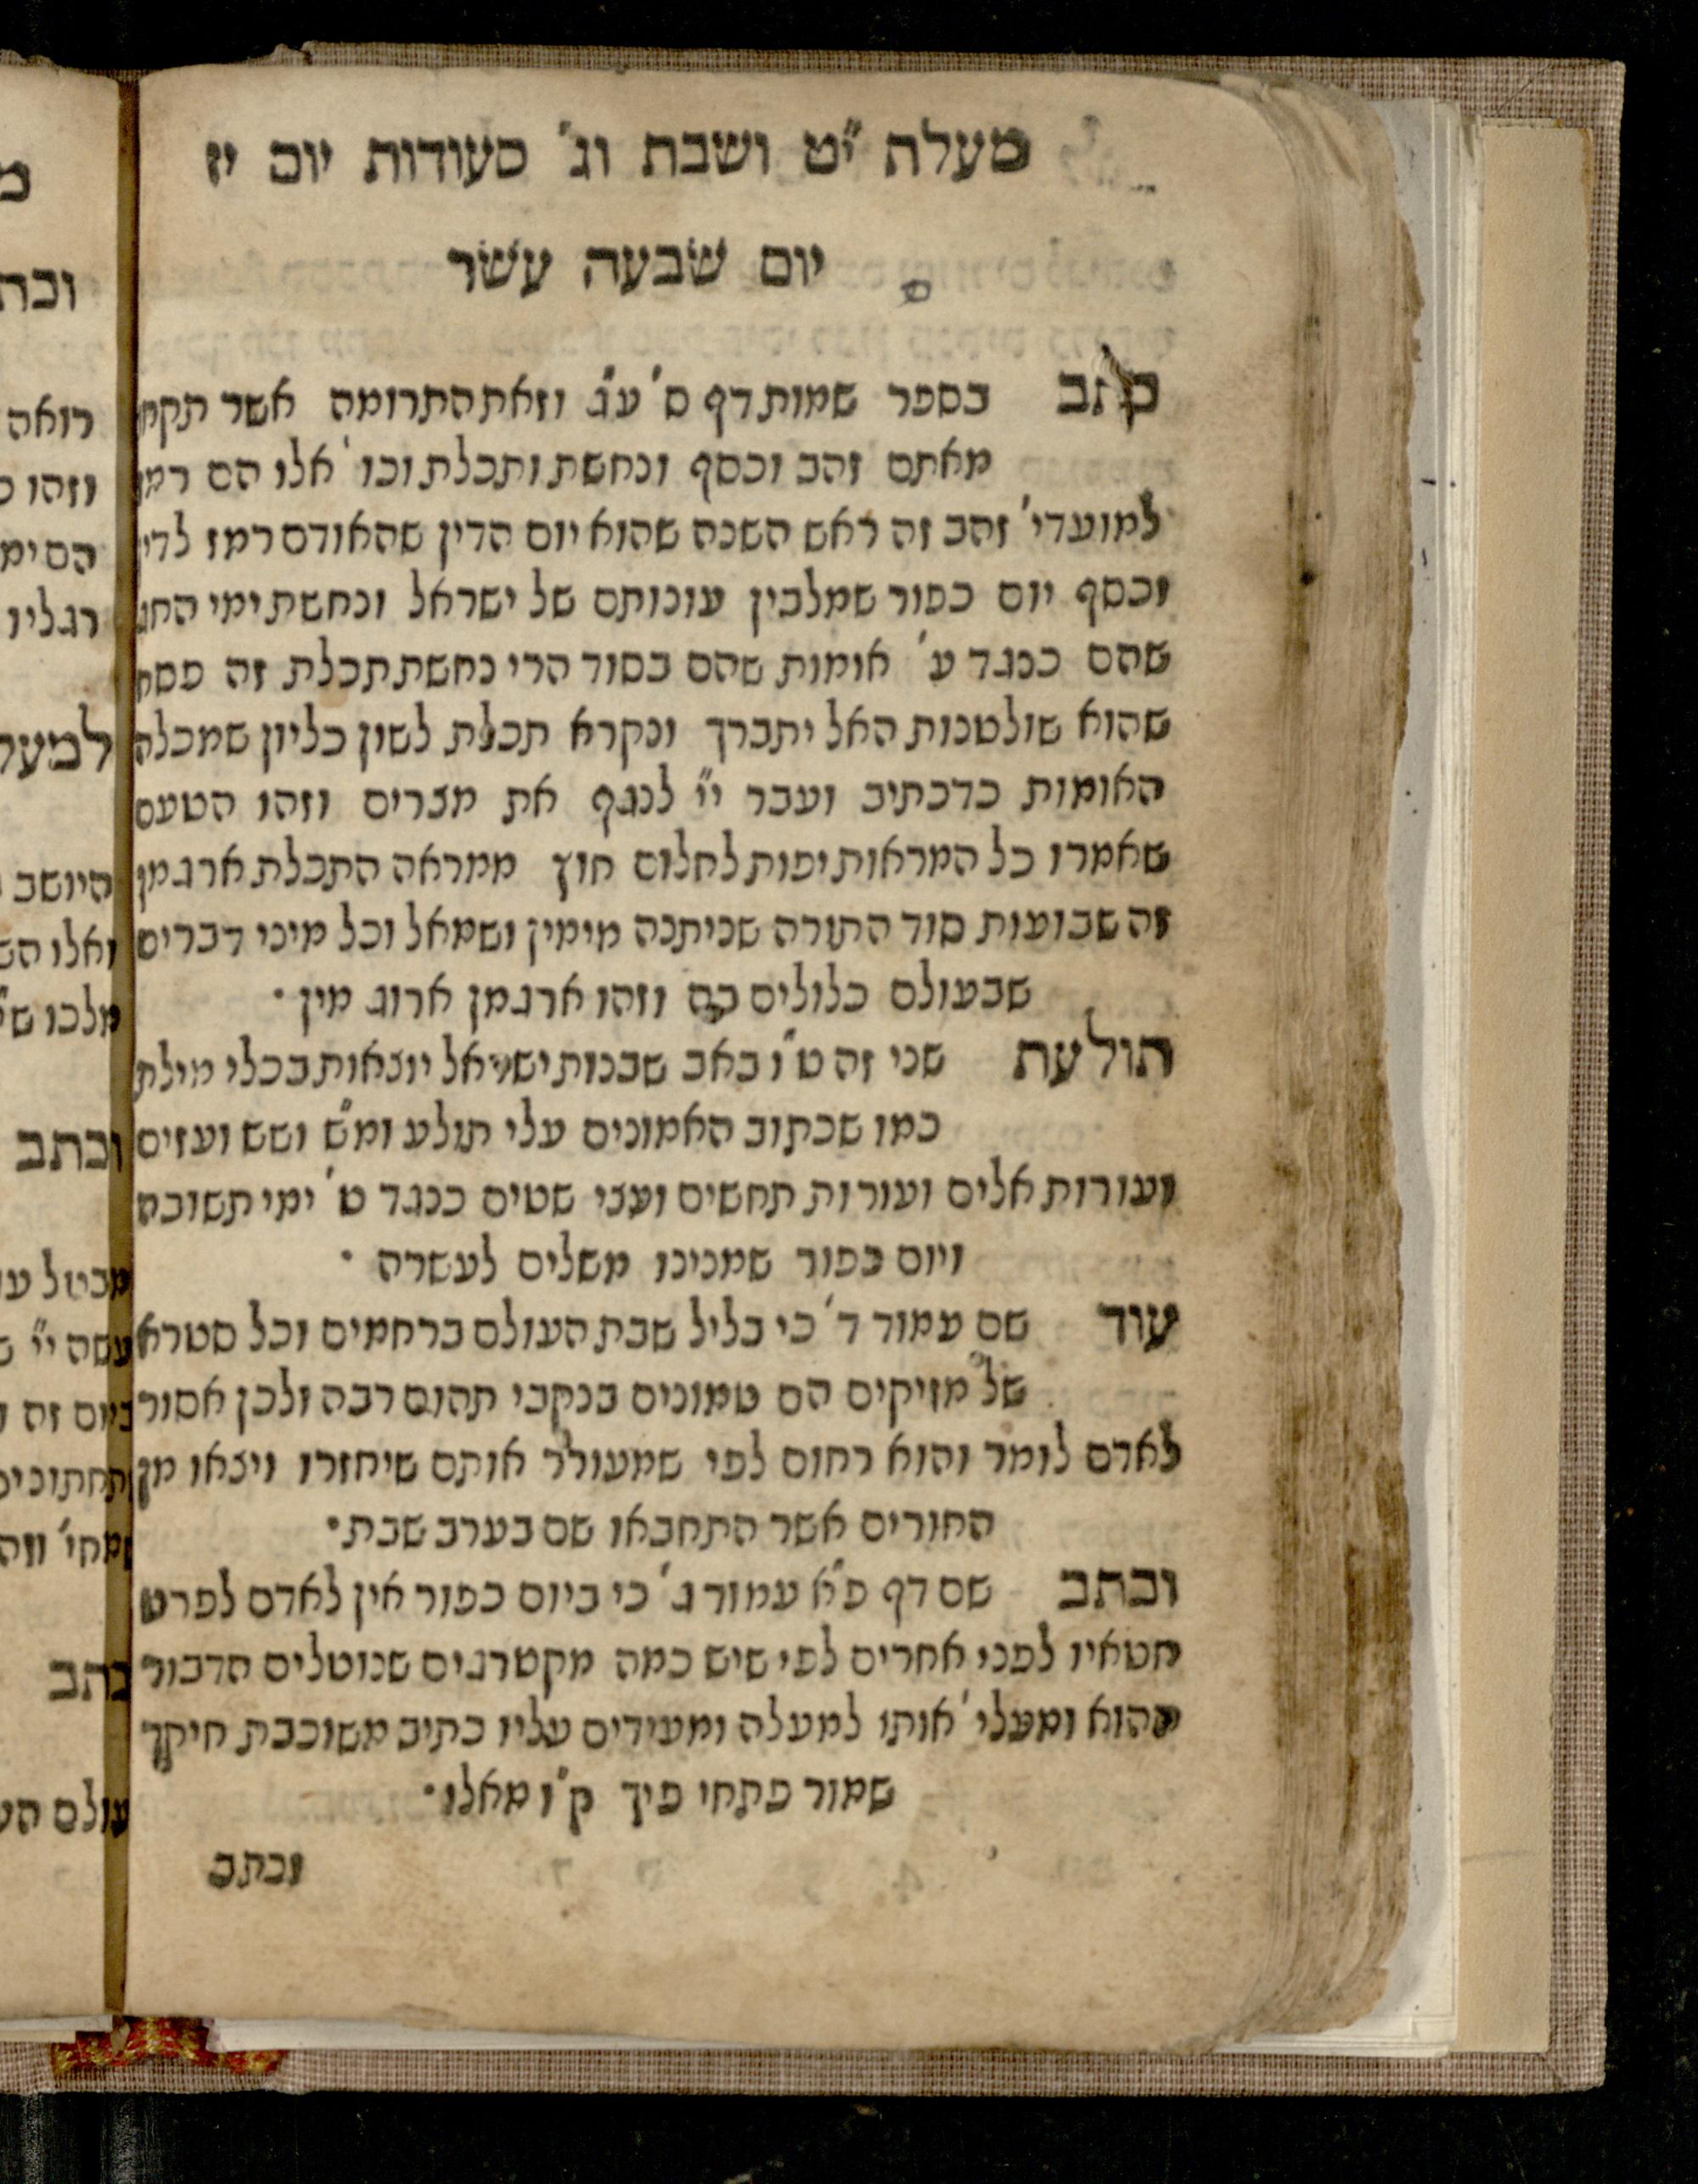 מעלת י"ט ושבת וג' סעודות יום יז
יום שבעה עשר
כתב בספר שמות דף ס' ע"ג וזאת התרומה אשר תקחו
מאתם זהב וכסף ונחשת ותכלת וכו' אלו הם רמז
למועדי' זהב זה ראש השנה שהוא יום הדין שהאודם רמז לדין
וכסף יום כפור שמלבין עונותם של ישראל ונחשת ימי החג
שהם כנגד ע' אומות שהם בסוד הרי נחשת תכלת זה פסח
שהוא שולטנות האל יתברך ונקרא תכלת לשון כליון שמכלה
האומות כדכתיב ועבר י"י לנגף את מצרים וזהו הטעם
שאמרו כל המראות יפות לחלום חוץ ממראה התכלת ארגמן
זה שבועות סוד התורה שניתנה מימין ושמאל וכל מיני דברים
שבעולם כלולים בה וזהו ארגמן ארוג מין ·
תולעת שני זה ט"ו באב שבנות ישראל יוצאות בכלי מילת
כמו שכתוב האמונים עלי תולע ומ"ש ושש ועזים
ועורות אלים ועורות תחשים ועצי שטים כנגד ט' ימי תשובה
ויום כפור שמנינו משלים לעשרה ·
עוד שם עמוד ד' כי בליל שבת העולם ברחמים וכל סטרא
של מזיקים הם טמונים בנקבי תהום רבה ולכן אסור
לאדם לומר והוא רחום לפי שמעורר אותם שיחזרו ויצאו מן
החורים אשר התחבאו שם בערב שבת·
וכתב שם דף פ"א עמוד ג' כי ביום כפור אין לאדם לפרט
חטאיו לפני אחרים לפי שיש כמה מקטרגים שנוטלים הדבור
ההוא ומעלי' אותו למעלה ומעידים עליו כתיב משוכבת חיקך
שמור פתחי פיך ק"ו מאלו·
וכתב